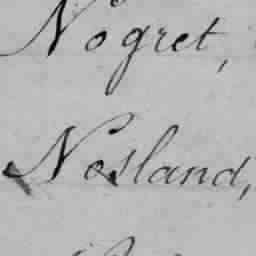 Nogret,
Nosland,